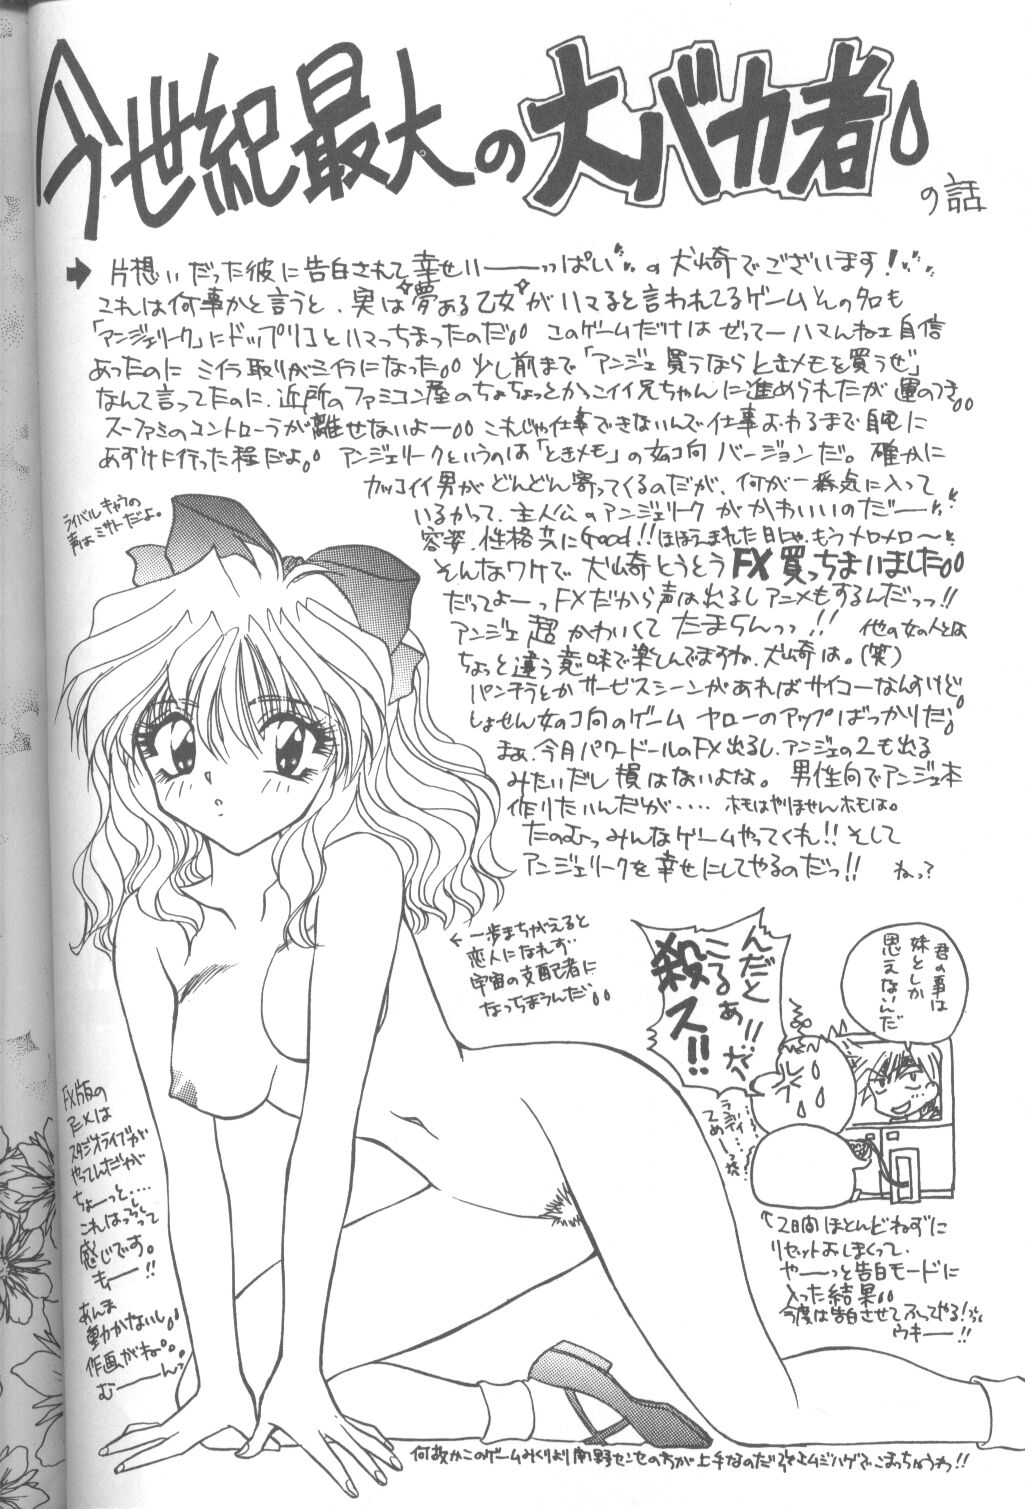 今世紀最大の大バカ者
の話
片想いだった彼に告白されて幸せいーーっぱいの犬崎でございます!
これは何事かと言うと、実は夢ある乙女がハマると言われてるゲームその名も
「アンジェリーク」にドップリコとハマっちまったのだ。。このゲームだけはぜってーハマんねェ自信
あったのにミイラ取りがミイラになった。。少し前まで「アンジェ買うならときメモを買うぜ」
なんて言ってたのに、近所のファミコン屋のちょっとかっこイイ兄ちゃんに進められたが運のつき。。
スーファミのコントローラが離せないよー。。これじゃ仕事できないんで仕事おわるまで自宅に
あずけに行った程だよ。。アンジェリークというのは「ときメモ」の女のコ向バージョンだ。確かに
カッコイイ男がどんどん寄ってくるのだが、何が一番気に入って
いるかって、主人公のアンジェリークがかわいいのだーー
容姿、性格共にGood!!ほほうまれた日にゃ、もうメロメロ〜
そんなワケで犬崎とうとうFX買っちまいました。。
だってよーっFXだから声は出るしアニメもするんだっっ!!
アンジェ超かわいくてたまらんっっ!! 他の女の人とは
ちょっと違う意味で楽しんでますね、犬崎は。(笑)
パンチラとかサービスシーンがあればサイコーなんすけど。
しょせん女のコ向のゲーム ヤローのアップばっかりだ。
まぁ、今月パワードールのFX出るし、アンジェの2も出る
みたいだし損はないよな。男性向でアンジェ本
作りたいんだが‥‥ホモはやりませんホモは。
たのむっみんなゲームやってくれ!!そして
アンジェリークを幸せにしてやるのだっ!! ねっ?
ライバルキャラの
声はミサトだよ。
←一歩まちがえると
恋人になれず
宇宙の支配者に
なっちまうんだ。。
んだと
こるぁ!!
殺ス!!
君の事は
妹としか
思えないんだ
てめーっ
FX版の
アニメは
スタジオライブが
やってんだが
ちょーっと‥‥
これはっ
って
感じです。
キィーー!!
あんま
動かないし。。
作画がね。。。
むーーん?
↑2日間ほとんどねずに
リセットおしまくって、
やーーっと告白モードに
入った結果。。
今度は告白させてふってやる!
ウキーー!!
何故かこのゲームみくりより南野センセの方が上手なのだ
こまっちゃうわ!!